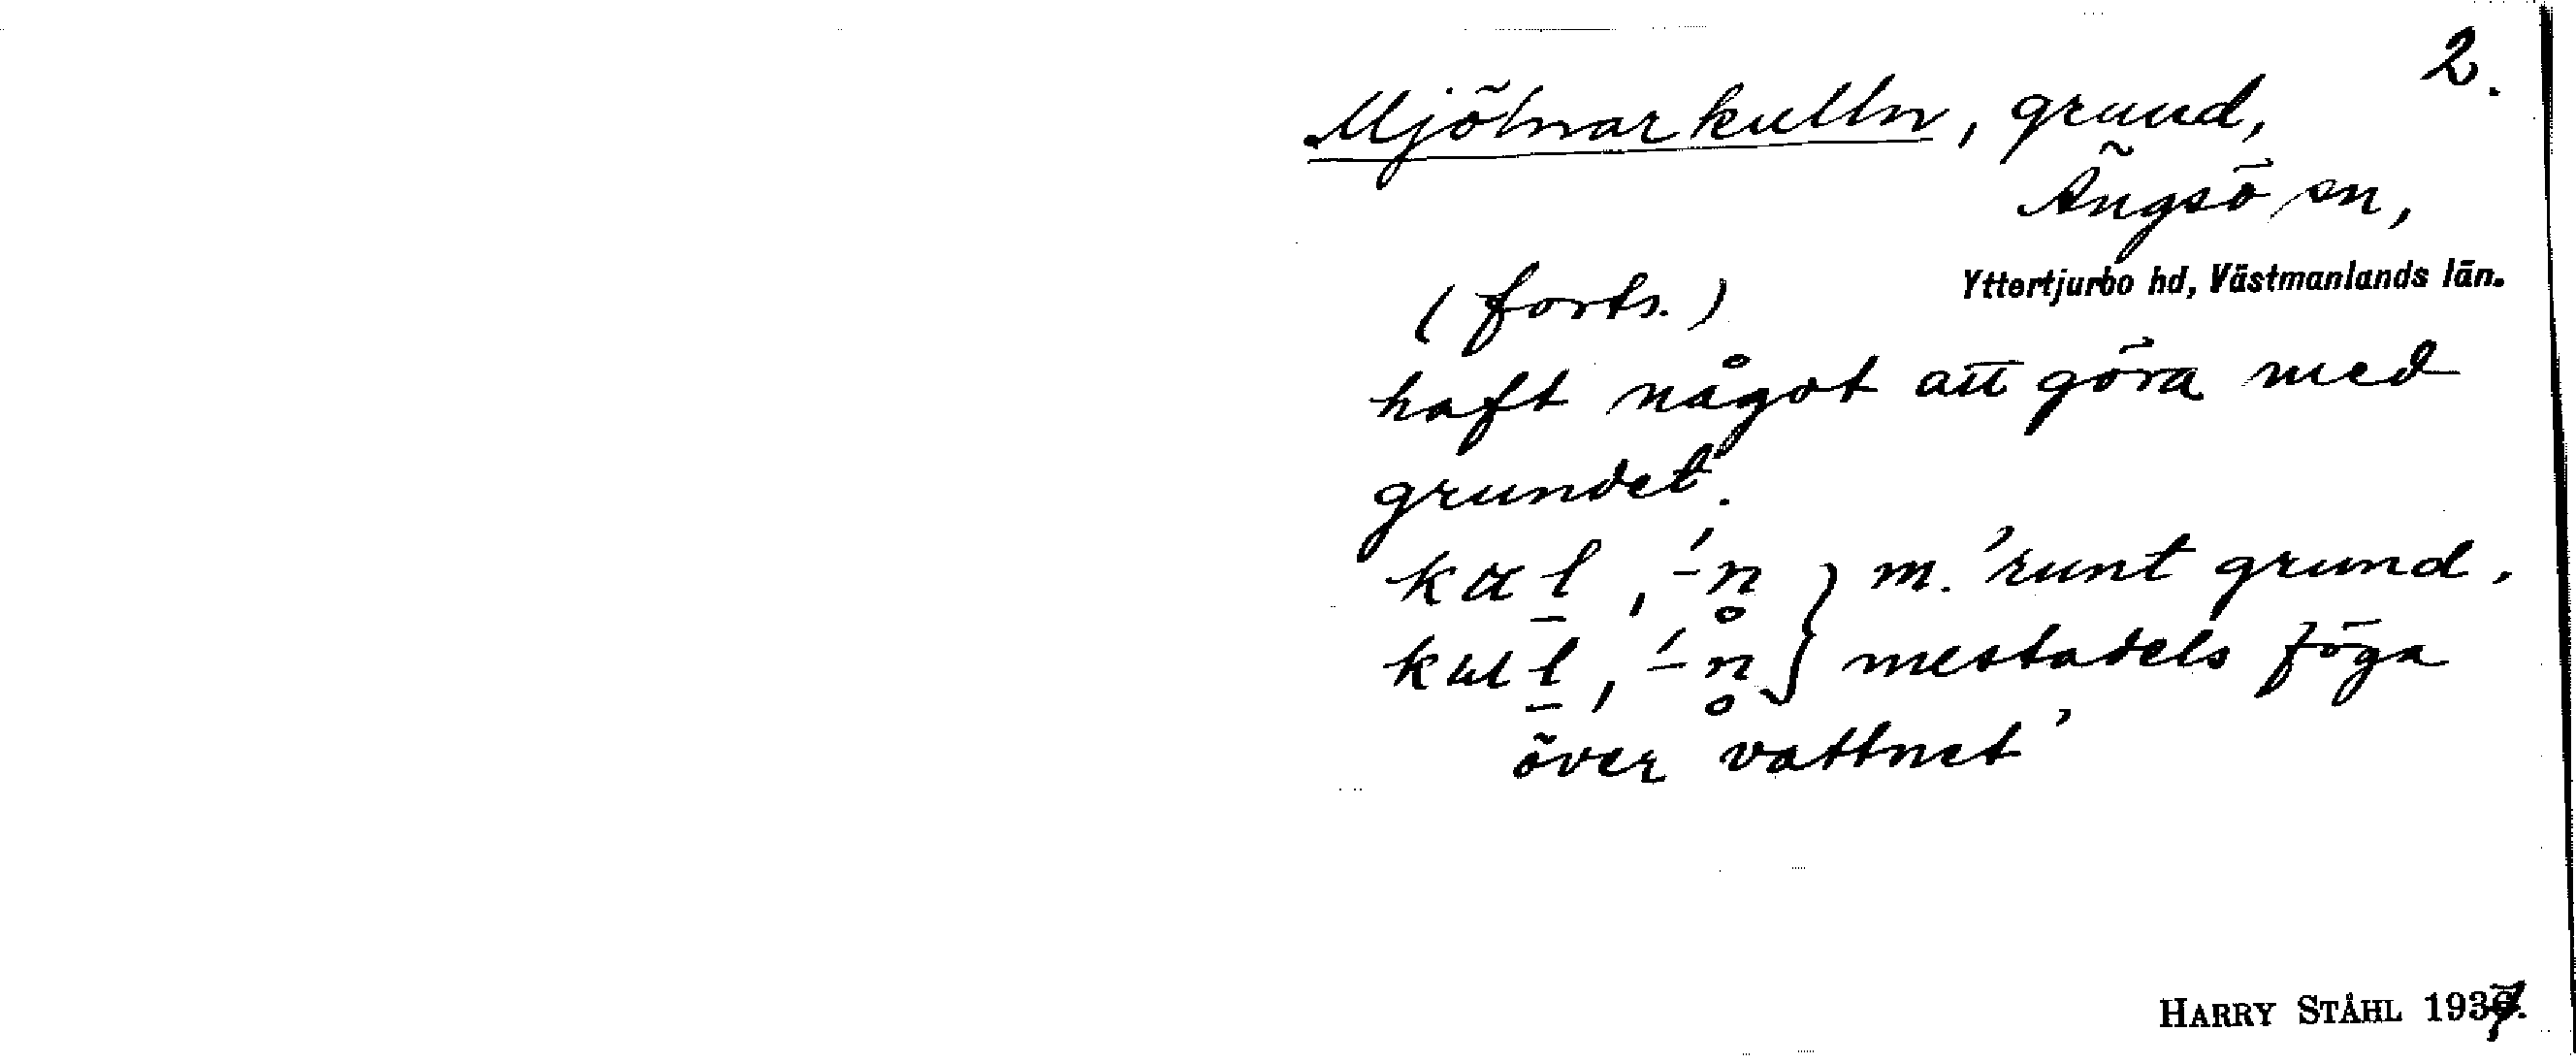 2.
Mjölnarkulln, grund,
Ängsö sn,
Yttertjurbo hd, Västmanlands län.
(forts.)
haft något att göra med
grundet.
kul, -́n } m. 'runt grund,
kul, -́n } mestadels föga
över vattnet'
HARRY STÅHL 1937.